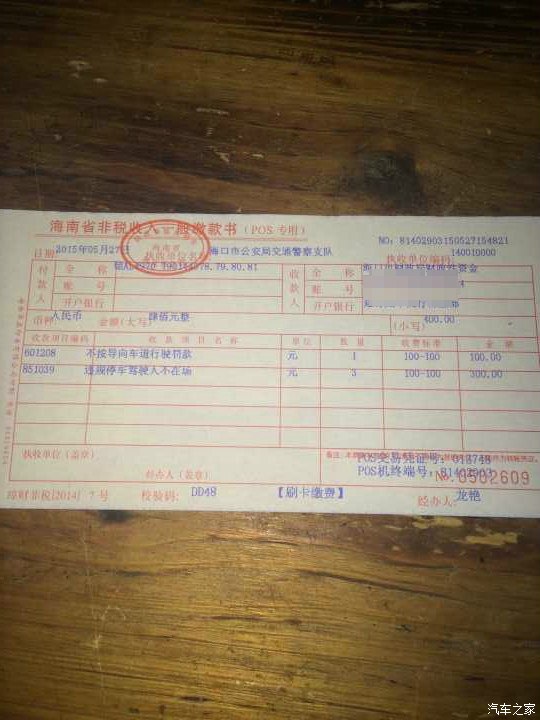 海南省非税收入一般缴款书(POS专用)
NO: 81402903150527154821
日期 2015年05月27日 执收单位名 海口市公安局交通警察支队 执收单位编码: 140010000
付款人 全称 收款人 全称
账号 账号
开户银行 开户银行
币种 人民币 金额(大写) 肆佰元整 (小写) 400.00
收款项目编码 收款项目名称 单位 数量 收费标准 金额
601208 不按导向车道行驶罚款 元 1 100-100 100.00
851039 违规停车驾驶人不在场 元 3 100-100 300.00
执收单位(盖章)
经办人(盖章)
备注:
POS交易凭证号: 013748
POS机终端号: 81402903
No.0502609
琼财非税[2014]7号 校验码: DD48 【刷卡缴费】 经办人: 龙艳
汽车之家